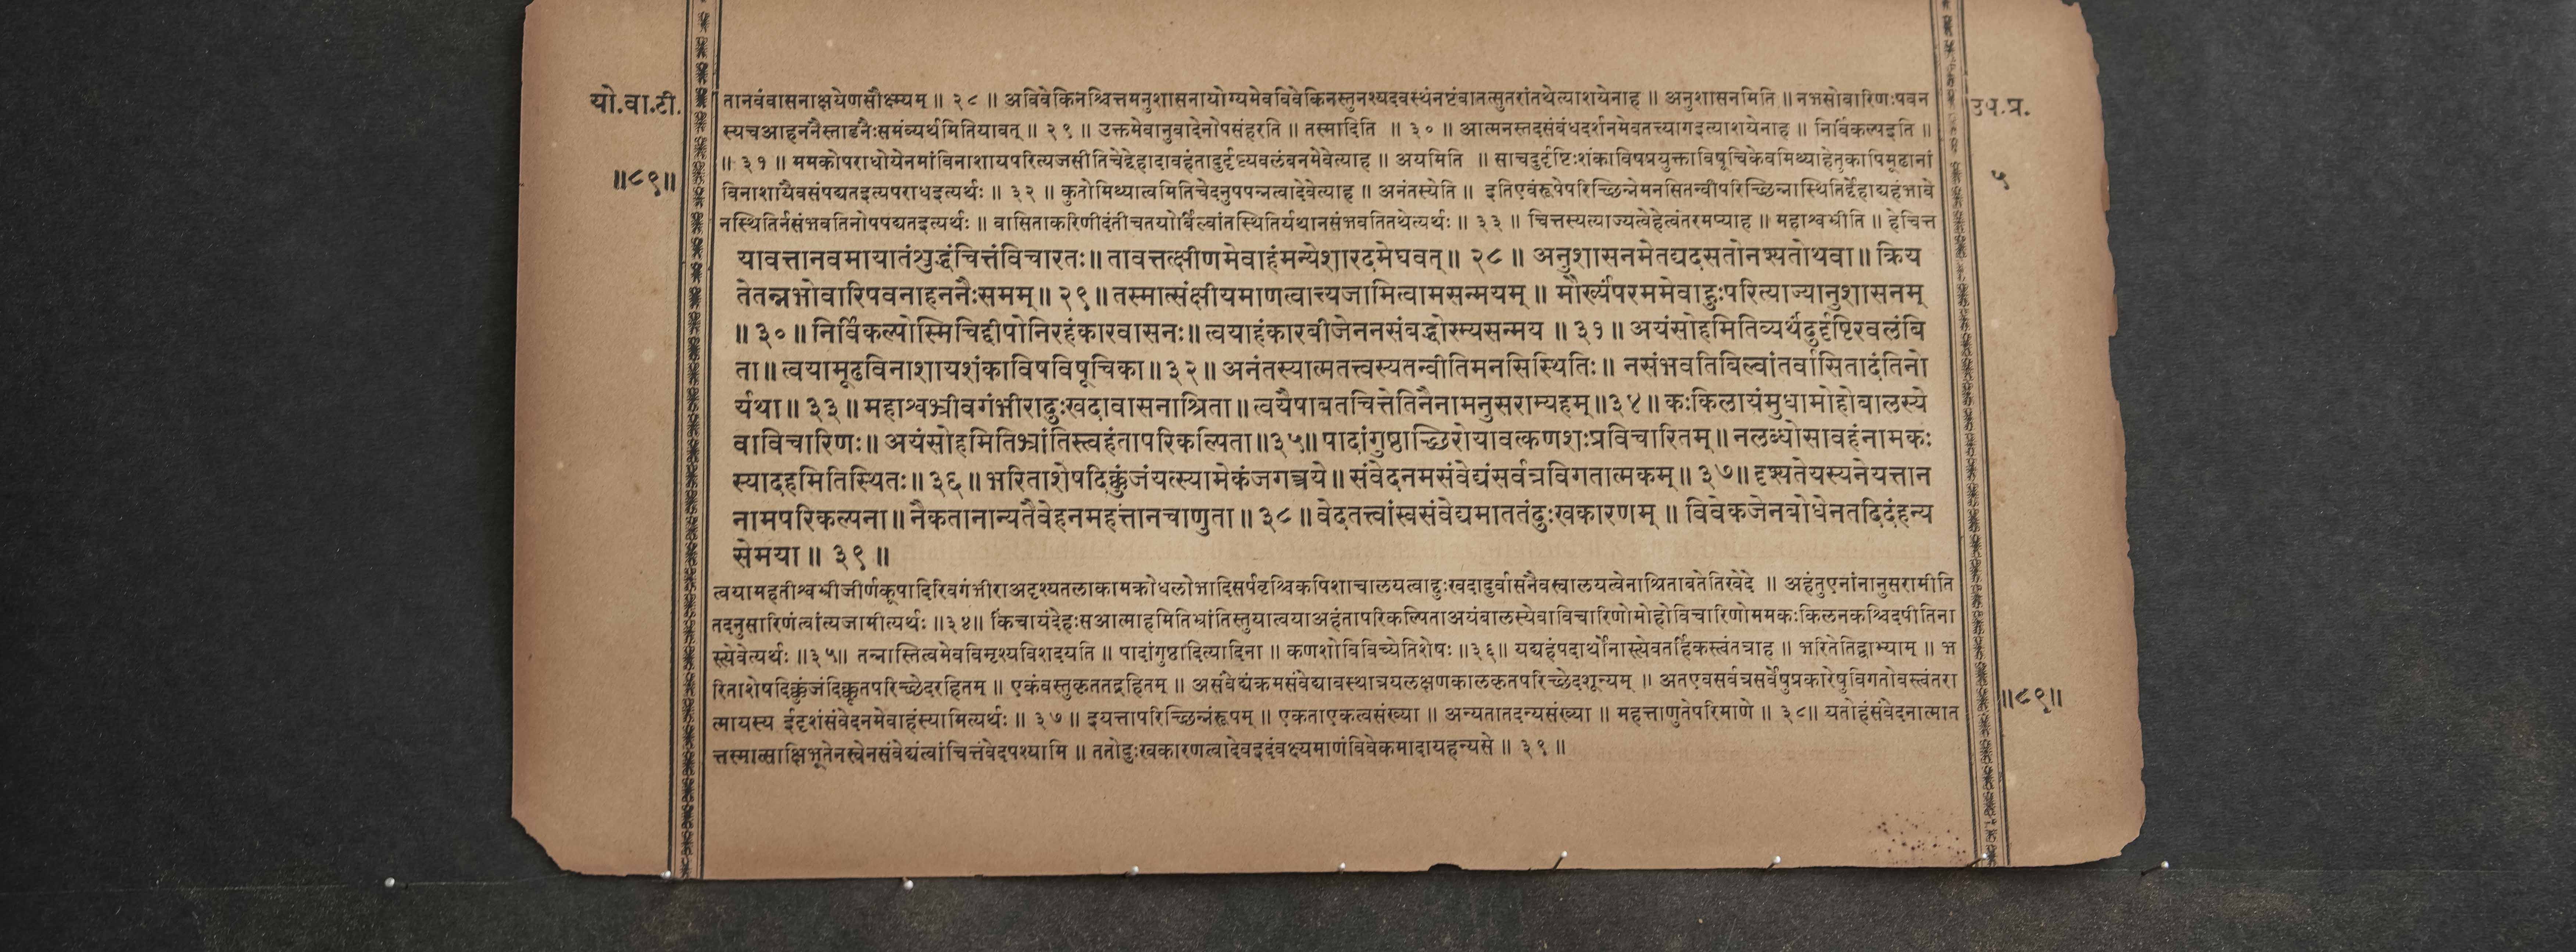 यो.वा.टी.
॥८९॥
उप.प्र.
५
तानवंवासनाक्षयेणसौक्ष्म्यम् ॥ २८ ॥ अविवेकिनश्चित्तमनुशासनायोग्यमेवविवेकिनस्तुनश्यदवस्थंनष्टंवातत्सुतरांतथेत्याशयेनाह ॥ अनुशासनमिति ॥ नभसोवारिणःपवन
स्यचआहननैस्ताडनैःसमंव्यर्थमितियावत् ॥ २९ ॥ उक्तमेवानुवादेनोपसंहरति ॥ तस्मादिति ॥ ३० ॥ आत्मनस्तदसंबंधदर्शनमेवतत्त्यागइत्याशयेनाह ॥ निर्विकल्पइति ॥
॥ ३१ ॥ ममकोपराधोयेनमांविनाशायपरित्यजसीतिचेद्देहादावहंतादुर्दृष्ट्यवलंबनमेवेत्याह ॥ अयमिति ॥ साचदुर्दृष्टिःशंकाविषप्रयुक्ताविषूचिकेवमिथ्याहेतुकापिमूढानां
विनाशायैवसंपद्यतइत्यपराधइत्यर्थः ॥ ३२ ॥ कुतोमिथ्यात्वमितिचेदनुपपन्नत्वादेवेत्याह ॥ अनंतस्येति ॥ इतिएवंरूपेपरिच्छिन्नेमनसितन्वीपरिच्छिन्नास्थितिर्देहाद्यहंभावे
नस्थितिर्नसंभवतिनोपपद्यतइत्यर्थः ॥ वासिताकरिणीदंतीचतयोर्बिल्वांतस्थितिर्यथानसंभवतितथेत्यर्थः ॥ ३३ ॥ चित्तस्यत्याज्यत्वेहेत्वंतरमप्याह ॥ महाश्वभ्रीति ॥ हेचित्त
यावत्तानवमायातंशुद्धंचित्तंविचारतः॥ तावत्तत्क्षीणमेवाहंमन्येशारदमेघवत्॥ २८ ॥ अनुशासनमेतद्यदसतोनश्यतोथवा॥ क्रिय
तेतन्नभोवारिपवनाहननैःसमम्॥ २९॥ तस्मात्संक्षीयमाणत्वात्त्यजामित्वामसन्मयम्॥ मौर्ख्यंपरममेवाहुःपरित्याज्यानुशासनम्
॥ ३०॥ निर्विकल्पोस्मिचिद्दीपोनिरहंकारवासनः॥ त्वयाहंकारबीजेननसंबद्धोस्म्यसन्मय ॥ ३१॥ अयंसोहमितिव्यर्थंदुर्दृष्टिरवलंबि
ता॥ त्वयामूढविनाशायशंकाविषविषूचिका॥ ३२॥ अनंतस्यात्मतत्त्वस्यतन्वीतिमनसिस्थितिः॥ नसंभवतिबिल्वांतर्वासितादंतिनो
र्यथा॥ ३३॥ महाश्वभ्रीवगंभीरादुःखदावासनाश्रिता॥ त्वयैषाबतचित्तेतिनैनामनुसराम्यहम्॥३४॥ कःकिलायंमुधामोहोबालस्ये
वाविचारिणः॥ अयंसोहमितिभ्रांतिस्त्वहंतापरिकल्पिता॥३५॥ पादांगुष्ठाच्छिरोयावत्कणशःप्रविचारितम्॥ नलब्धोसावहंनामकः
स्यादहमितिस्थितः॥३६॥ भरिताशेषदिक्कुंजंयत्स्यामेकंजगत्त्रये॥ संवेदनमसंवेद्यंसर्वत्रविगतात्मकम्॥ ३७॥ दृश्यतेयस्यनेयत्तान
नामपरिकल्पना॥ नैकतानान्यतैवेहनमहत्तानचाणुता॥ ३८॥ वेदतत्त्वांस्वसंवेद्यमाततंदुःखकारणम्॥ विवेकजेनबोधेनतदिदंहन्य
सेमया॥ ३९॥
त्वयामहतीश्वभ्रीजीर्णकूपादिरिवगंभीराअदृश्यतलाकामक्रोधलोभादिसर्पवृश्चिकपिशाचालयत्वाद्दुःखदादुर्वासनैवस्वालयत्वेनाश्रिताबतेतिखेदे ॥ अहंतुएनांनानुसरामीति
तदनुसारिणंत्वांत्यजामीत्यर्थः ॥३४॥ किंचायंदेहःसआत्माहमितिभ्रांतिस्तुयात्वयाअहंतापरिकल्पिताअयंबालस्येवाविचारिणोमोहोविचारिणोममकःकिलनकश्चिदपीतिना
स्त्येवेत्यर्थः ॥३५॥ तन्नास्तित्वमेवविमृश्यविशदयति ॥ पादांगुष्ठादित्यादिना ॥ कणशोविविच्येतिशेषः ॥३६॥ यद्यहंपदार्थोनास्त्येवतर्हिकस्त्वंतत्राह ॥ भरितेतिद्वाभ्याम् ॥ भ
रिताशेषदिक्कुंजंदिक्कृतपरिच्छेदरहितम् ॥ एकंवस्तुकृततद्रहितम् ॥ असंवेद्यंक्रमसंवेद्यावस्थात्रयलक्षणकालकृतपरिच्छेदशून्यम् ॥ अतएवसर्वत्रसर्वेषुप्रकारेषुविगतोवस्त्वंतरा
त्मायस्य ईदृशंसंवेदनमेवाहंस्यामित्यर्थः ॥ ३७ ॥ इयत्तापरिच्छिन्नंरूपम् ॥ एकताएकत्वसंख्या ॥ अन्यतातदन्यसंख्या ॥ महत्ताणुतेपरिमाणे ॥ ३८॥ यतोहंसंवेदनात्मात
त्तस्मात्साक्षिभूतेनस्वेनसंवेद्यंत्वांचित्तंवेदपश्यामि ॥ ततोदुःखकारणत्वादेवइदंवक्ष्यमाणंविवेकमादायहन्यसे ॥ ३९॥
॥८९॥